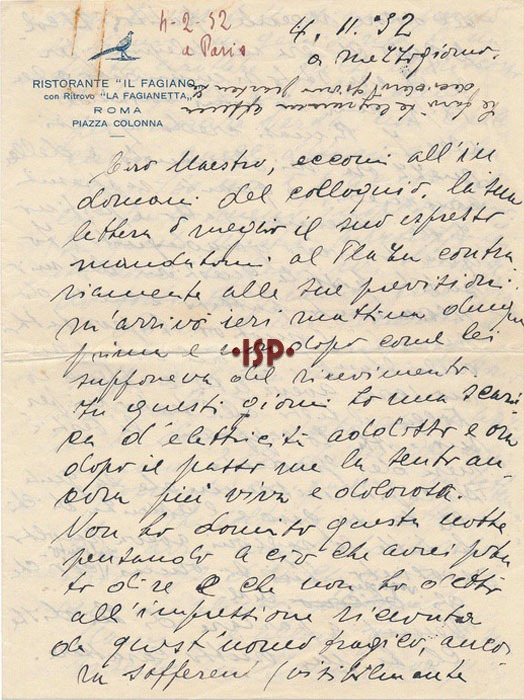 4-2-32
a Paris
4. 11. '32
a mezzogiorno.
RISTORANTE "IL FAGIANO"
con Ritrovo "LA FAGIANETTA"
ROMA
PIAZZA COLONNA
Caro Maestro, eccomi all'in
domani del colloquio. La sua
lettera o meglio il suo espresso
mandatomi al Plaza contra
riamente alle sue previsioni.
m'arrivò ieri mattina dunque
prima e non dopo come lei
supponeva del ricevimento
In questi giorni ho una scari
ca d'elettricità addosso e ora
dopo il passo me la sento an
cora più viva e dolorosa.
Non ho dormito questa notte
pensando a ciò che avrei potu
to dire e che non ho detto
all'impressione ricevuta
da quest'uomo tragico, anco
ra sofferente (visibilmente
ISP